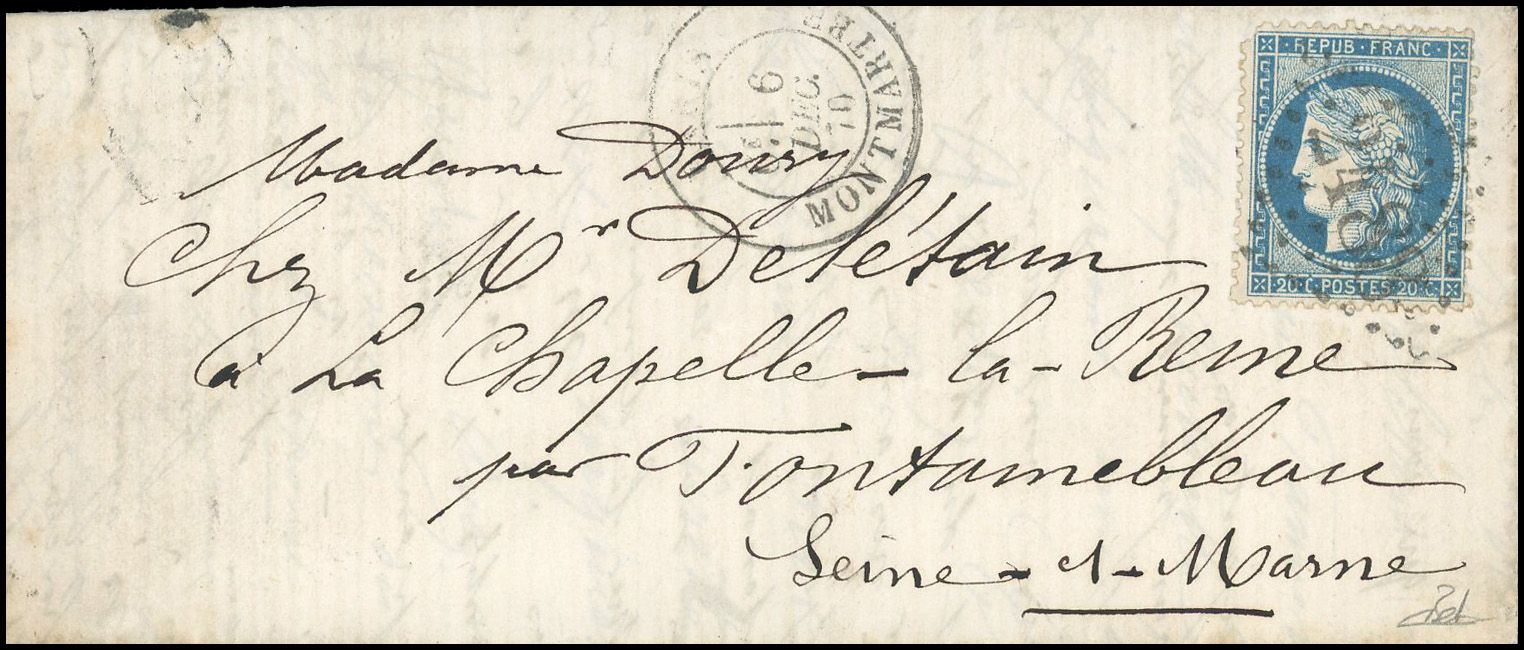 PARIS MONTMARTRE
6
DEC.
70
REPUB·FRANC·
20·C·POSTES·20·C
Madame Doury
Chez Mr Delétain
à La Chapelle-la-Reine
par Fontainebleau
Seine-&-Marne